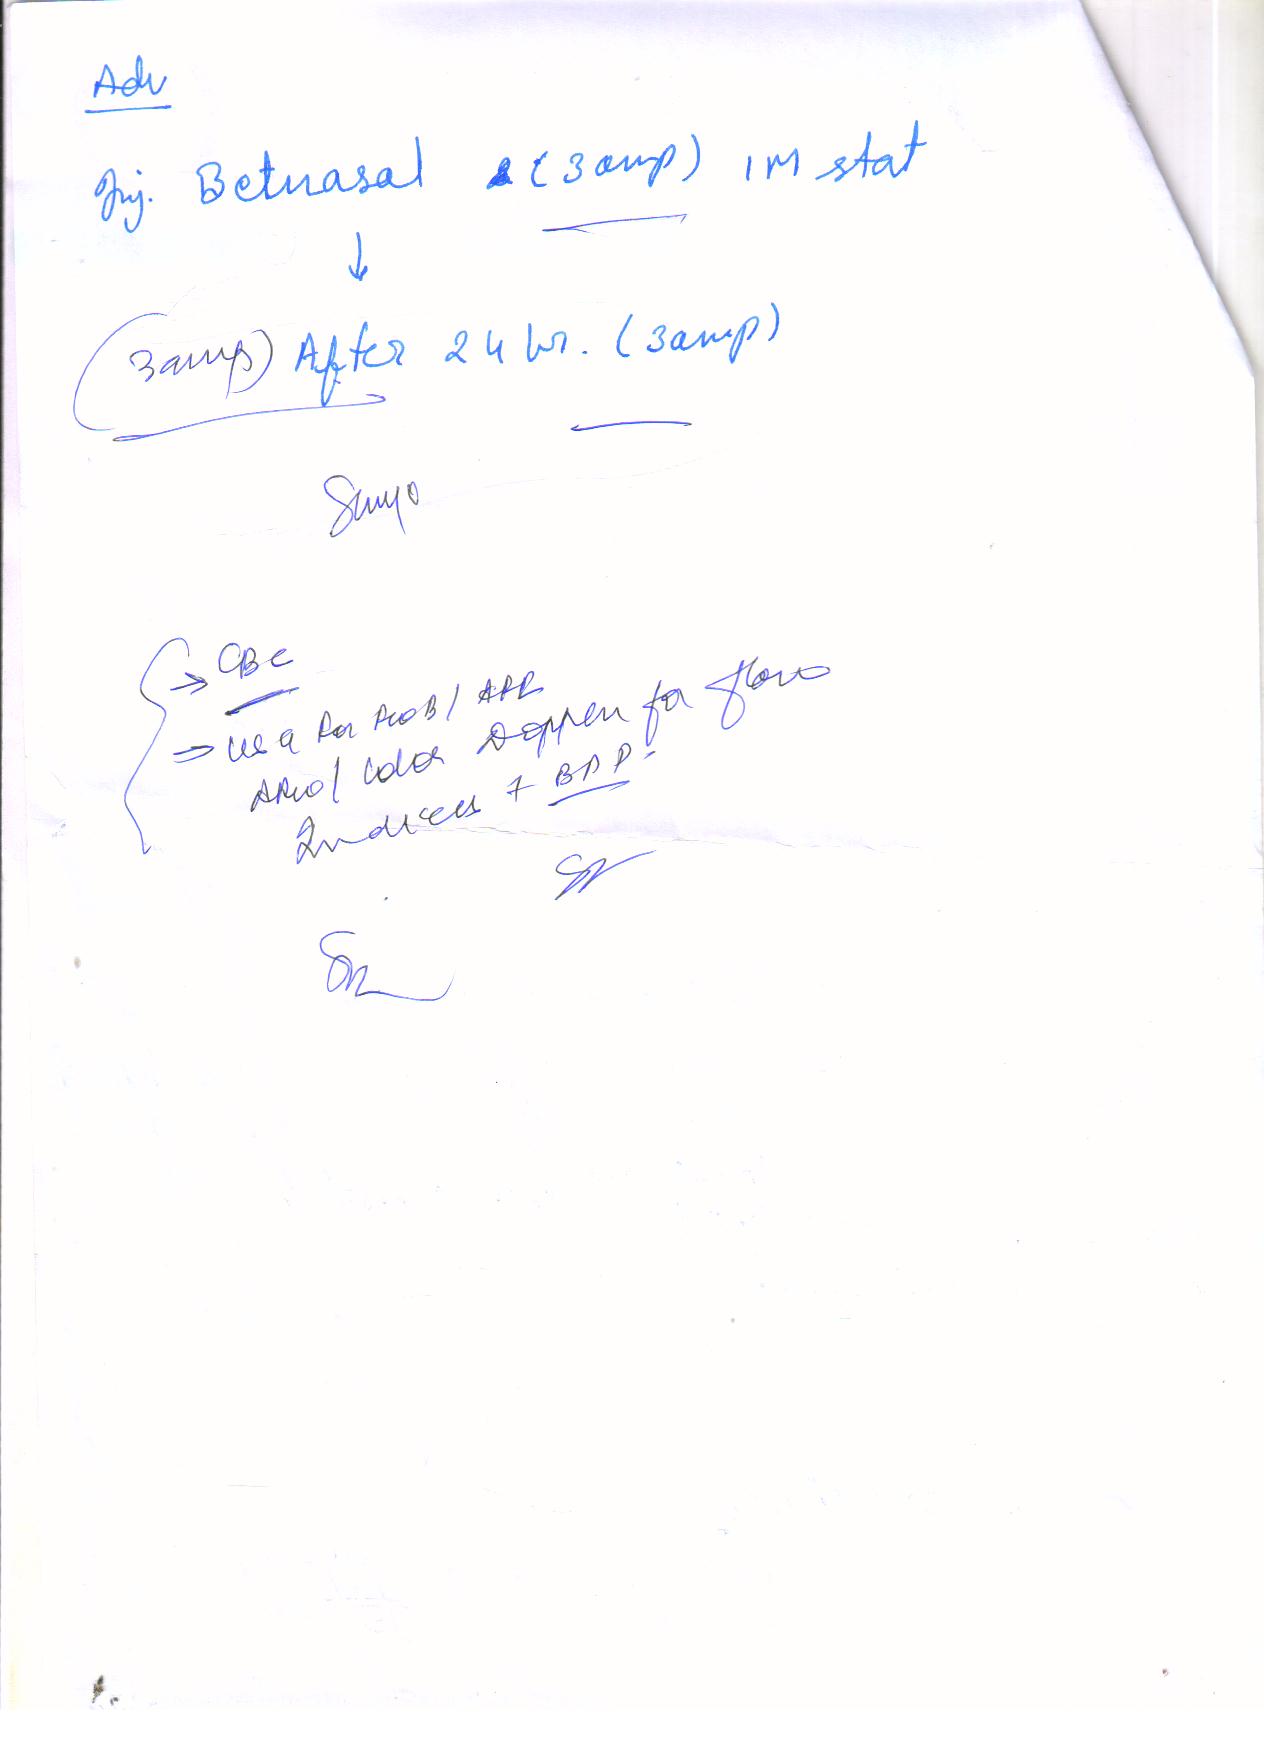 Adv
Inj. Betnasal (3 amp) IM stat
↓
3 amp) After 24 hr. (3 amp)
→ CBC
⇒ USG for / AFI
/ Color Doppler for flow
Indices + BPP.